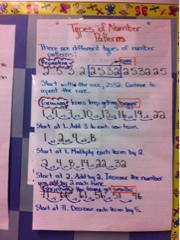 Types of Number
Patterns
There are different types of number
patterns:
Repeating
2 5 3 2 2 5 3 2 2 5 3 2 2 5
Start with the core, 2532. Continue to
repeat the core.
Growing: keep getting bigger
1, 4, 7, 10, 13, 16, 19, 22
Start at 1. Add 3 to each new term.
1, 2, 4, 8
Start at 1. Multiply each term by 2.
2, 4, 8, 14, 22, 32
Start at 2. Add by 2. Increase the number
you add by 2 each time.
Start at 71. Decrease each term by 5.